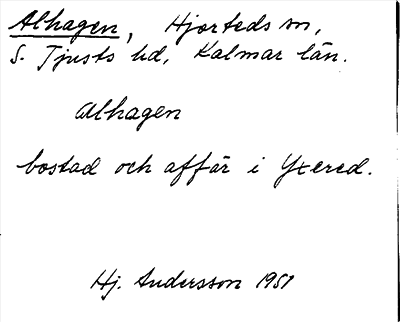 Alhagen, Hjorteds sn,
S. Tjusts hd, Kalmar län.
Alhagen
bostad och affär i Yxered.
Hj. Andersson 1951